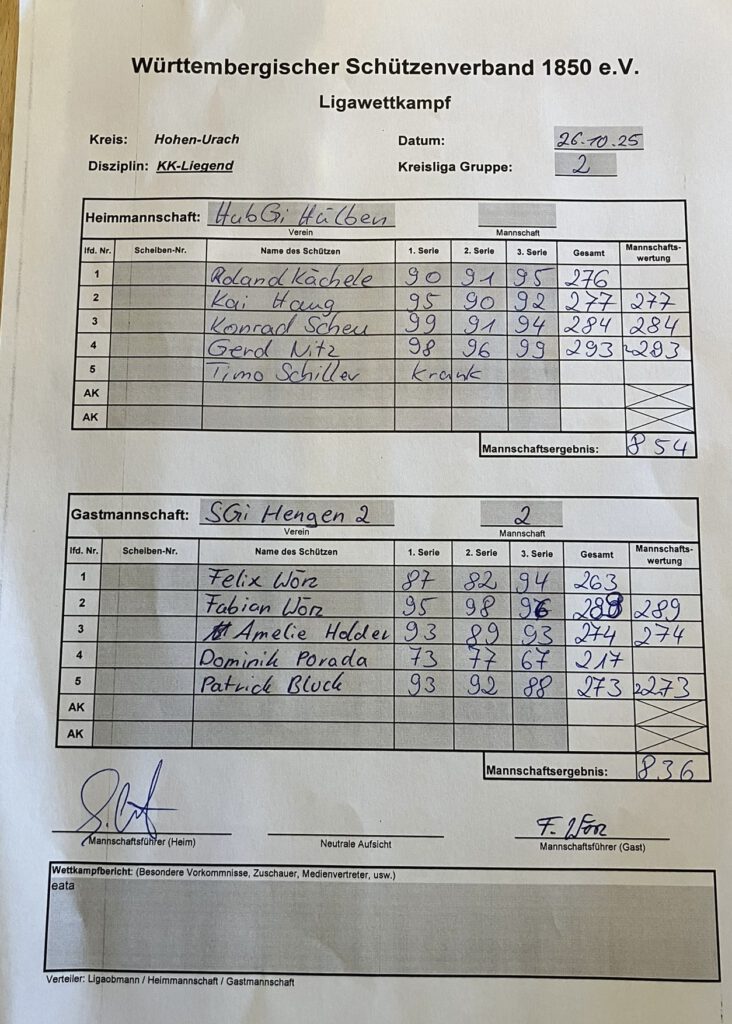 Württembergischer Schützenverband 1850 e.V.
Ligawettkampf
Kreis: Hohen-Urach Datum: 26.10.25
Disziplin: KK-Liegend Kreisliga Gruppe: 2
Heimmannschaft: HubGi Hülben
Verein Mannschaft
lfd. Nr. Scheiben-Nr. Name des Schützen 1. Serie 2. Serie 3. Serie Gesamt Mannschafts-wertung
1 Roland Kächele 90 91 95 276
2 Kai Haug 95 90 92 277 277
3 Konrad Scheu 99 91 94 284 284
4 Gerd Nitz 98 96 99 293 293
5 Timo Schiller Krank
AK
AK
Mannschaftsergebnis: 854
Gastmannschaft: SGi Hengen 2 2
Verein Mannschaft
lfd. Nr. Scheiben-Nr. Name des Schützen 1. Serie 2. Serie 3. Serie Gesamt Mannschafts-wertung
1 Felix Wörz 87 82 94 263
2 Fabian Wörz 95 98 96 289
3 Amelie Holder 93 89 93 274 274
4 Dominik Porada 73 77 67 217
5 Patrick Bluck 93 92 88 273 273
AK
AK
Mannschaftsergebnis: 836
F. Wörz
Mannschaftsführer (Heim) Neutrale Aufsicht Mannschaftsführer (Gast)
Wettkampfbericht: (Besondere Vorkommnisse, Zuschauer, Medienvertreter, usw.)
eata
Verteiler: Ligaobmann / Heimmannschaft / Gastmannschaft